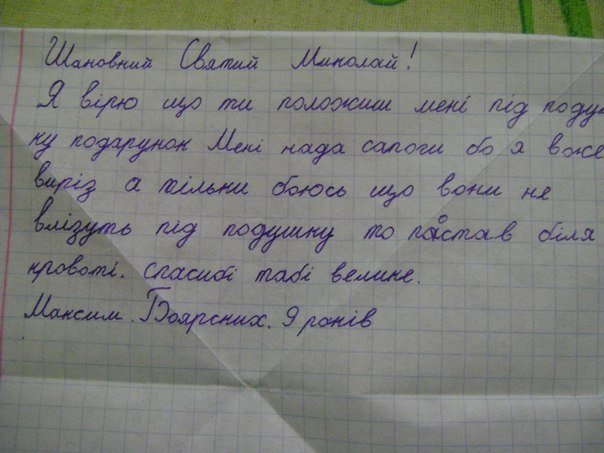 Шановний Святий Миколай!
Я вірю що ти положиш мені під подуш
ку подарунок Мені нада сапоги бо я вже
виріз а тільки боюсь що вони не
влізуть під подушку то поастав біля
кроваті. спасибі табі велике.
Максим. Боярских. 9 років